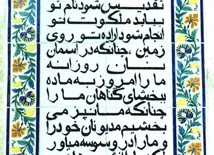 تقدیس شود نام تو
بیاید ملکوت تو
انجام شود اراده تو روی
زمین، چنانکه در آسمان
نان روزانه
ما را امروز به ما ده
ببخشای گناهان ما را
چنانکه ما نیز می
بخشیم مدیونان خود را
و ما را در وسوسه میاور